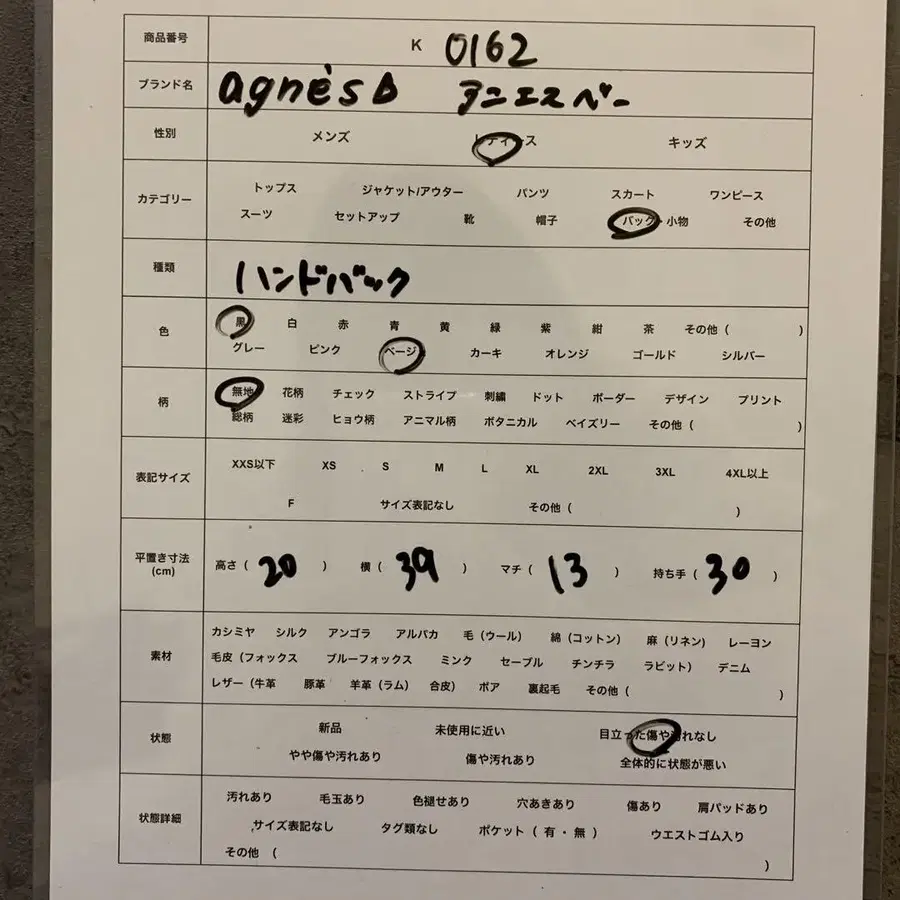 商品番号 K 0162
ブランド名 agnès b アニエスベー
性別 メンズ レディース キッズ
カテゴリー
トップス ジャケット/アウター パンツ スカート ワンピース
スーツ セットアップ 靴 帽子 バッグ・小物 その他
種類 ハンドバック
色
黒 白 赤 青 黄 緑 紫 紺 茶 その他（ ）
グレー ピンク ベージュ カーキ オレンジ ゴールド シルバー
柄
無地 花柄 チェック ストライプ 刺繍 ドット ボーダー デザイン プリント
総柄 迷彩 ヒョウ柄 アニマル柄 ボタニカル ペイズリー その他（ ）
表記サイズ
XXS以下 XS S M L XL 2XL 3XL 4XL以上
F サイズ表記なし その他（ ）
平置き寸法
(cm)
高さ（ 20 ） 横（ 39 ） マチ（ 13 ） 持ち手（ 30 ）
素材
カシミヤ シルク アンゴラ アルパカ 毛（ウール） 綿（コットン） 麻（リネン） レーヨン
毛皮（フォックス ブルーフォックス ミンク セーブル チンチラ ラビット） デニム
レザー（牛革 豚革 羊革（ラム） 合皮） ボア 裏起毛 その他（ ）
状態
新品 未使用に近い 目立った傷や汚れなし
やや傷や汚れあり 傷や汚れあり 全体的に状態が悪い
状態詳細
汚れあり 毛玉あり 色褪せあり 穴あきあり 傷あり 肩パッドあり
サイズ表記なし タグ類なし ポケット（ 有 ・ 無 ） ウエストゴム入り
その他 （ ）